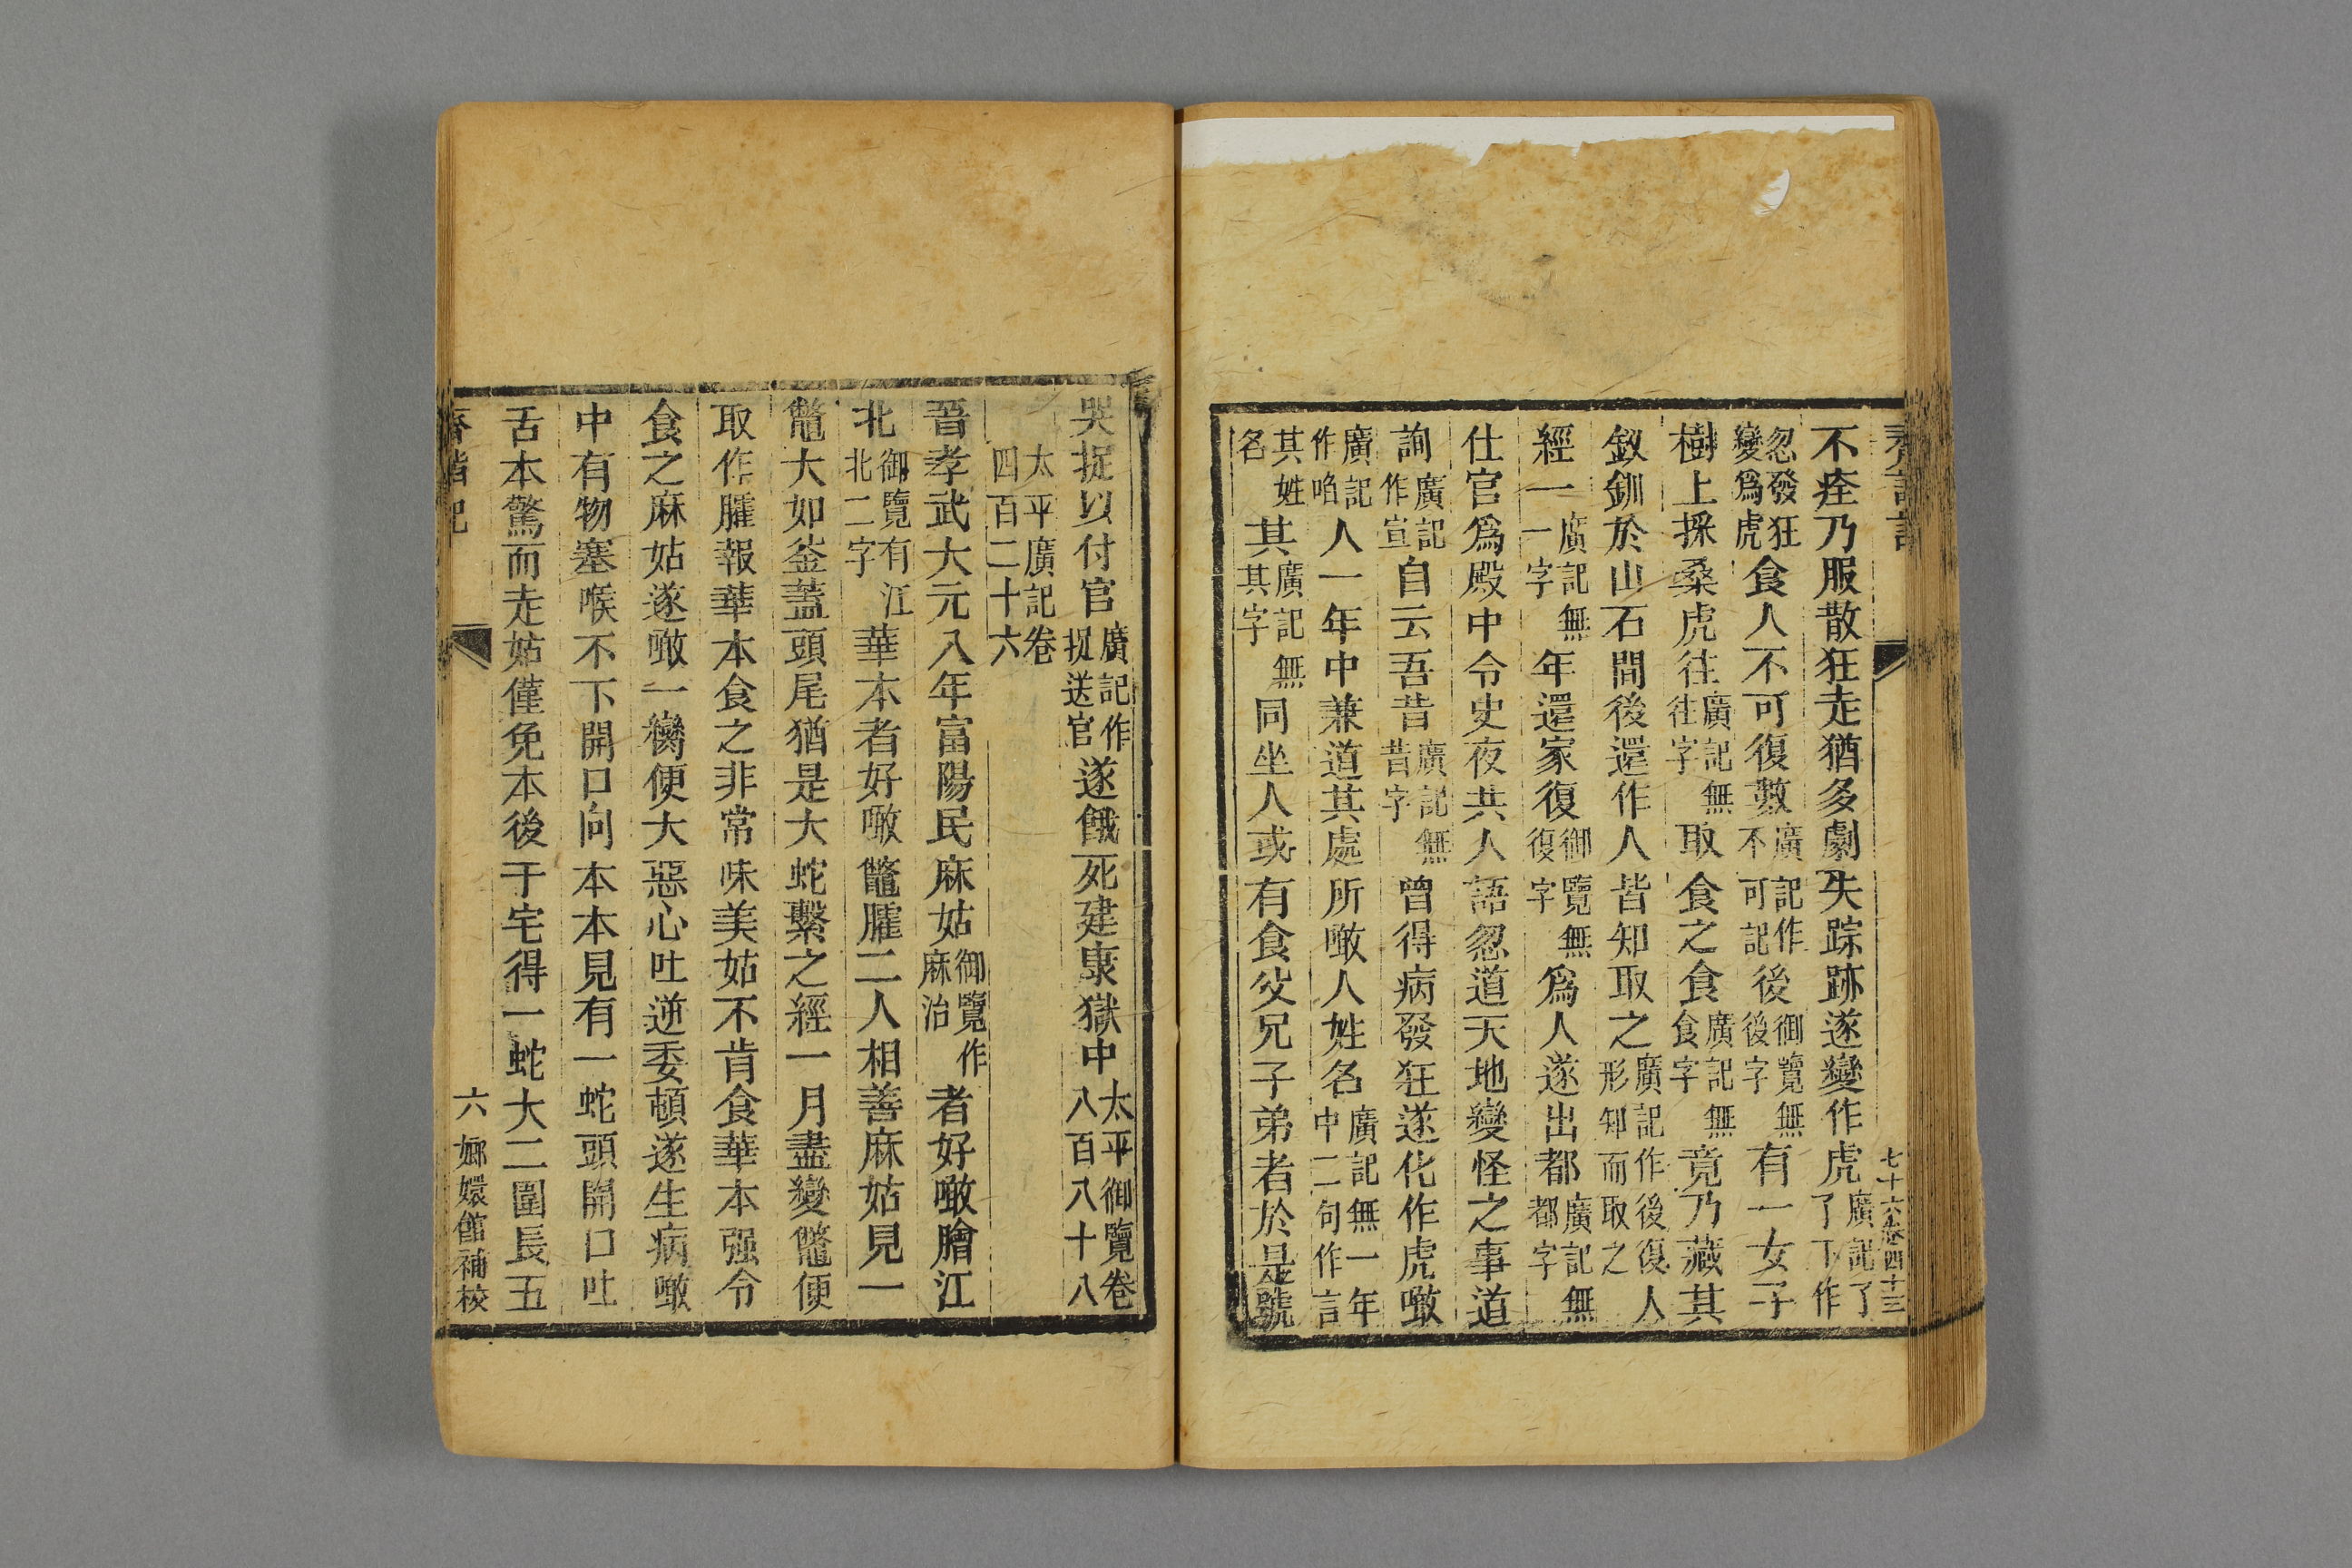 齊諧記
七十六卷四十三
不痊乃服散狂走猶多劇失踪跡遂變作虎廣記了了下作
忽發狂變爲虎食人不可復數廣記作不可記後御覽無後字有一女子
樹上採桑虎往廣記無往字取食之食廣記無食字竟乃藏其
釵釧於山石間後還作人皆知取之廣記作後復人形知而取之
經一廣記無一字年還家復御覽無復字爲人遂出都廣記無都字
仕官爲殿中令史夜共人語忽道天地變怪之事道
詢廣記作宣自云吾昔廣記無昔字曾得病發狂遂化作虎噉
廣記作啗人一年中兼道其處所噉人姓名廣記無一年中二句作言
其姓名其廣記無其字同坐人或有食父兄子弟者於是號
哭捉以付官廣記作捉送官遂餓死建康獄中太平御覽卷八百八十八
太平廣記卷四百二十六
晉孝武大元八年富陽民麻姑御覽作麻治者好噉膾江
北御覽有江北二字華本者好噉鼈臛二人相善麻姑見一
鼈大如釜蓋頭尾猶是大蛇繫之經一月盡變鼈便
取作臛報華本食之非常味美姑不肯食華本强令
食之麻姑遂噉一臠便大惡心吐逆委頓遂生病噉
中有物塞喉不下開口向本本見有一蛇頭開口吐
舌本驚而走姑僅免本後于宅得一蛇大二圍長五
齊諧記
六
嫏嬛館補校